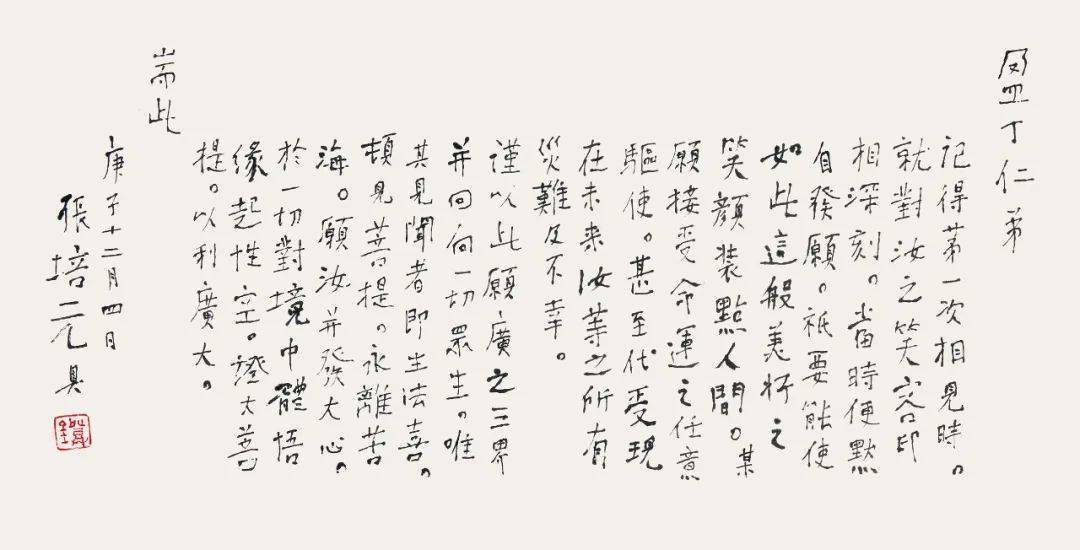 盈丁仁弟
記得第一次相見時。
就對汝之笑容印
相深刻。當時便默
自發願。祇要能使
如此這般美好之
笑顏裝點人間。某
願接受命運之任意
驅使。甚至代受現
在未来汝等之所有
災難及不幸。
謹以此願廣之三界
并回向一切眾生。唯
其見聞者即生法喜。
頓見菩提。永離苦
海。願汝并發大心。
於一切對境中體悟
緣起性空。證大菩
提。以利廣大。
耑此
庚子十二月四日
張培元具